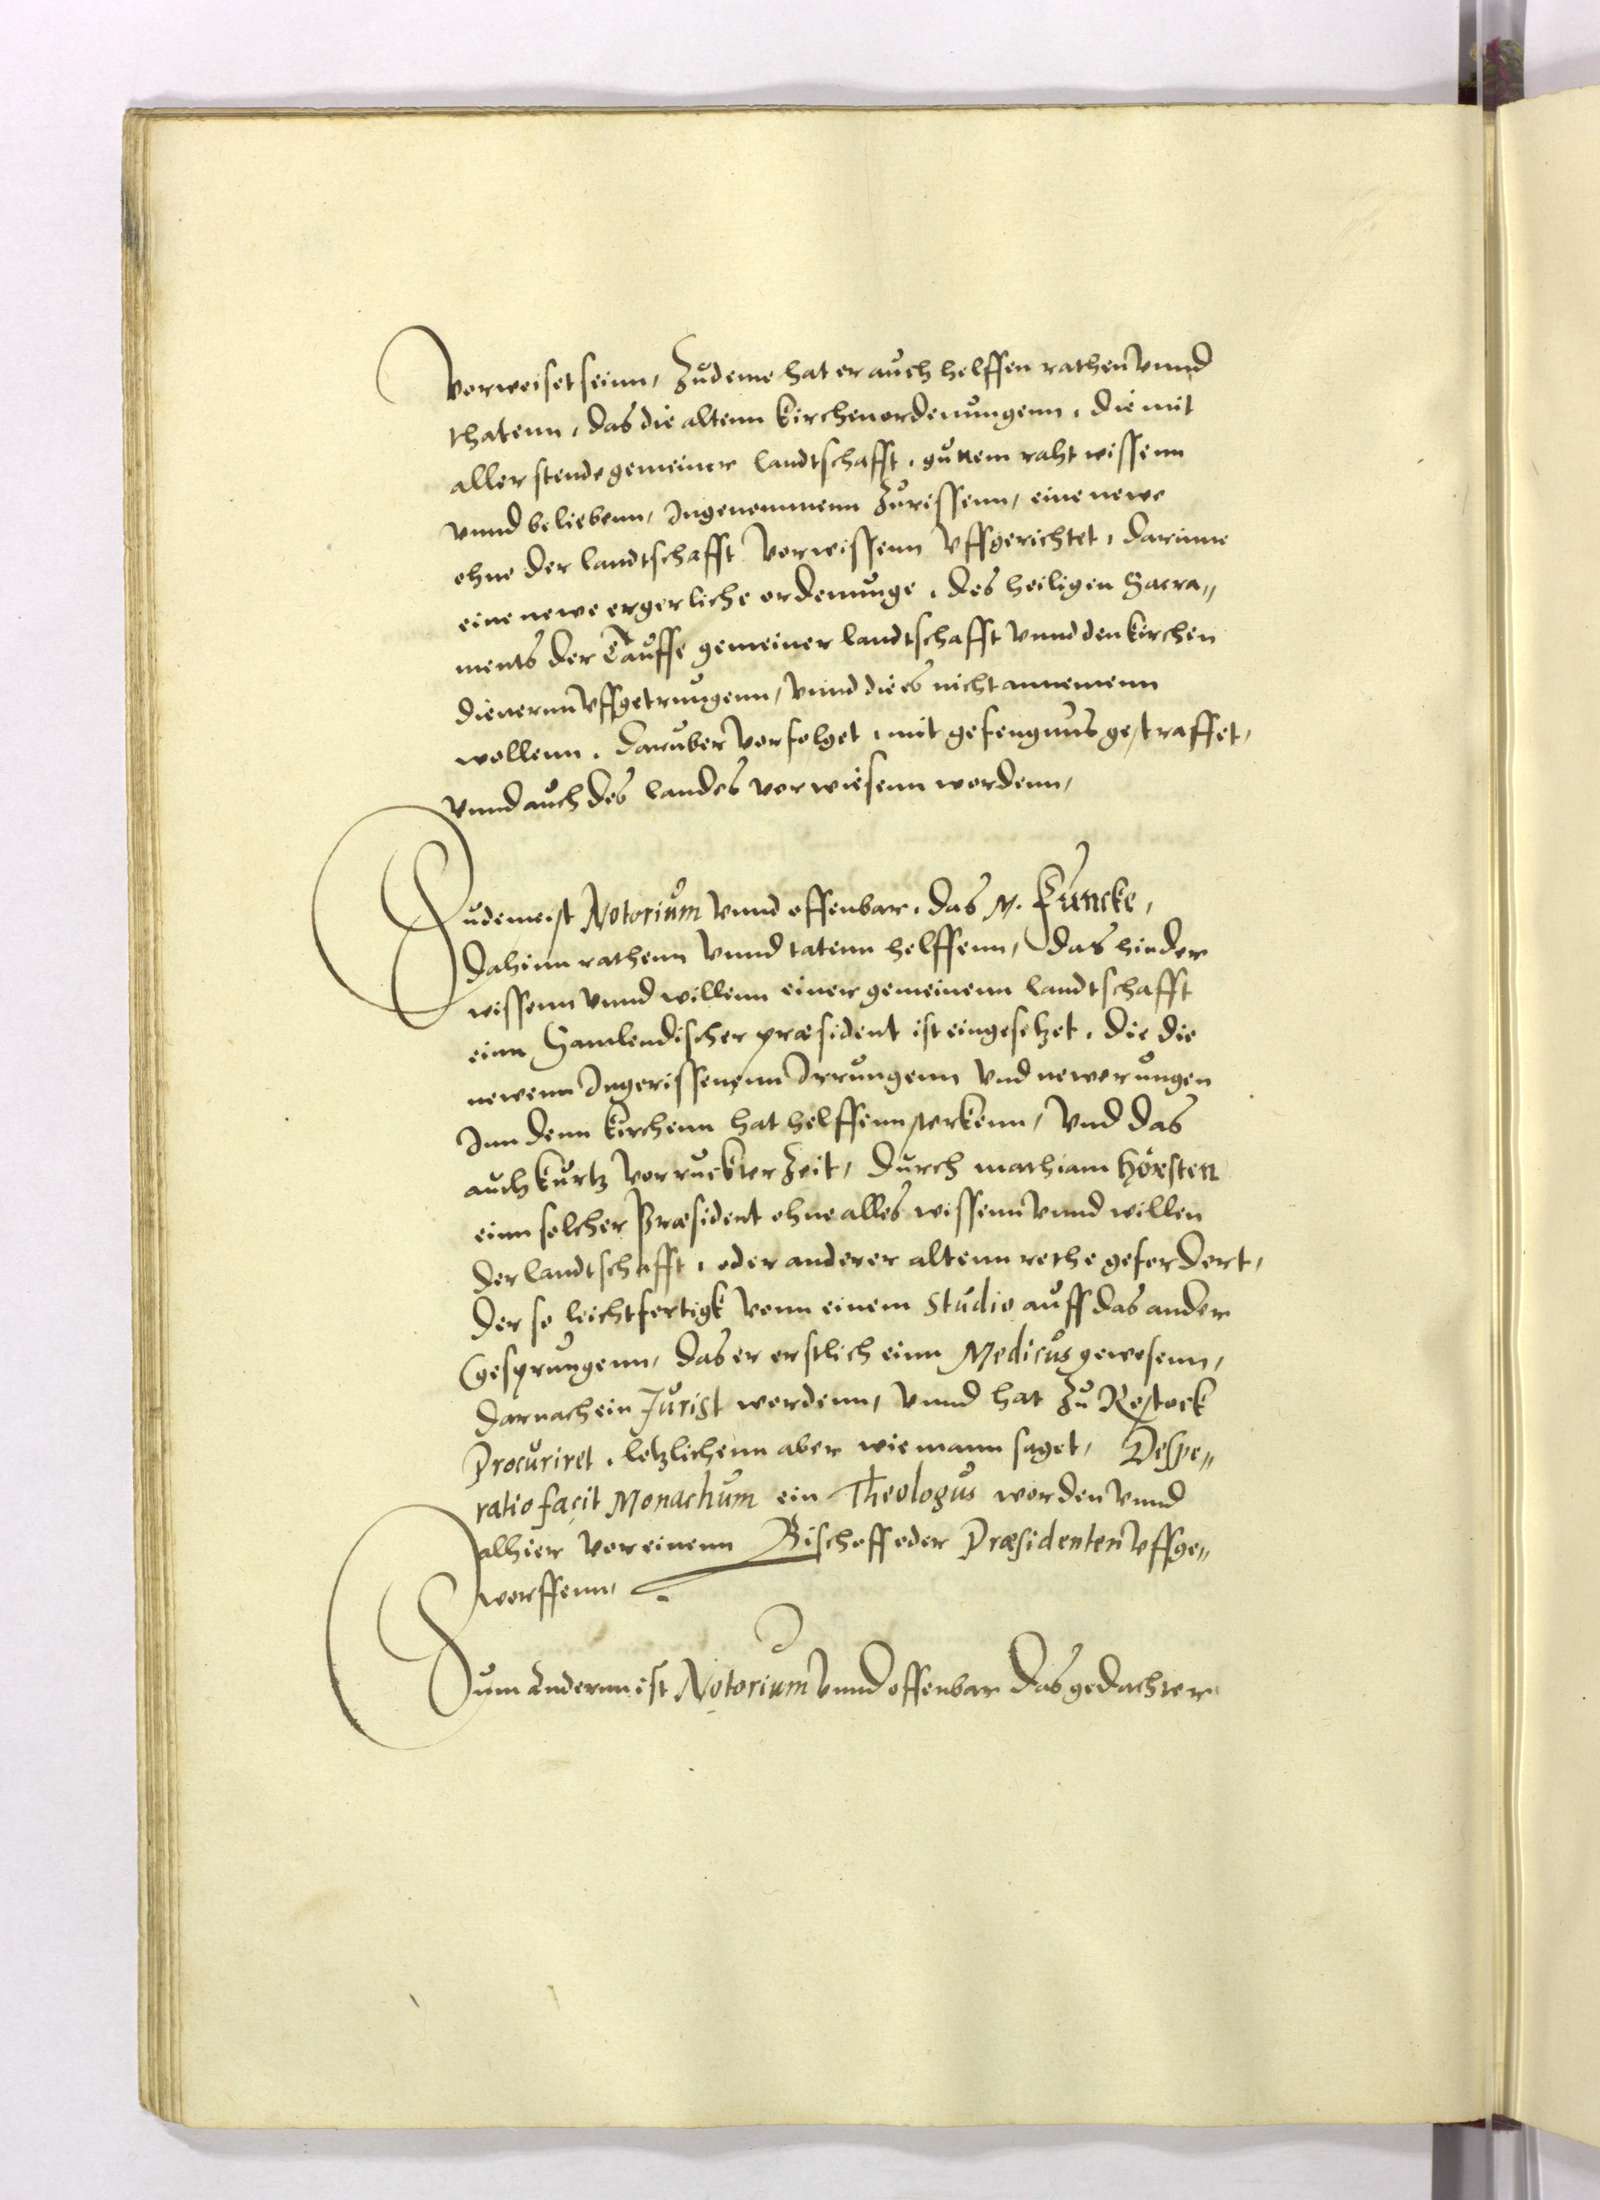 Vorweiset seinn, Zudeme hat er auch helffen rathen vnnd
thatenn, das die altenn Kirchenordenungenn, die mit
aller stende gemeiner landtschafft, gutem raht wissenn
vnnd beliebenn, Ingenommenn Zurissenn, eine newe
ohne der landtschafft Vorwissenn Vffgerichtet, darinne
eine newe ergerliche ordenunge, des heiligen Sacra„
ments der Tauffe gemeiner landtschafft vnnd den kirchen
dienernn Vffgetrungenn, vnnd die es nicht annemenn
wollenn, daruber Vorfolget, mit gefengnus gestraffet,
vnnd auch des landes vorwiesenn wordenn,
Zudeme ist Notorium vnnd offenbar, das M. Funcke,
dahinn rathenn vnnd tatenn helffenn, das hinder
wissenn vnnd willenn einer gemeinenn landtschafft
einn Samlendischer præsident ist eingesetzet, die die
newenn Ingerissenenn Irrungenn vnd newerungen
Inn denn kirchenn hat helffenn sterkenn, Vnd das
auch kurtz vorruckter Zeit, durch mathiam Höxsten
einn solcher Præsident ohne alles wissenn vnnd willen
der landtschafft, oder anderer altenn rethe gefordert,
der so leichtfertigk vonn einem Studio auff das ander
Gesprungenn, das er erstlich einn Medicus gewesenn,
darnach ein Jurist wordenn, vnnd hat Zu Rostock
Procuriret, letzlichenn aber wie mann saget, Despe„
ratio facit Monachum ein Theologus worden vnnd
alhier vor einenn Bischoff oder Præsidenten Vffge„
worffenn,
Zum Andernn ist Notorium vnnd offenbar das gedachter